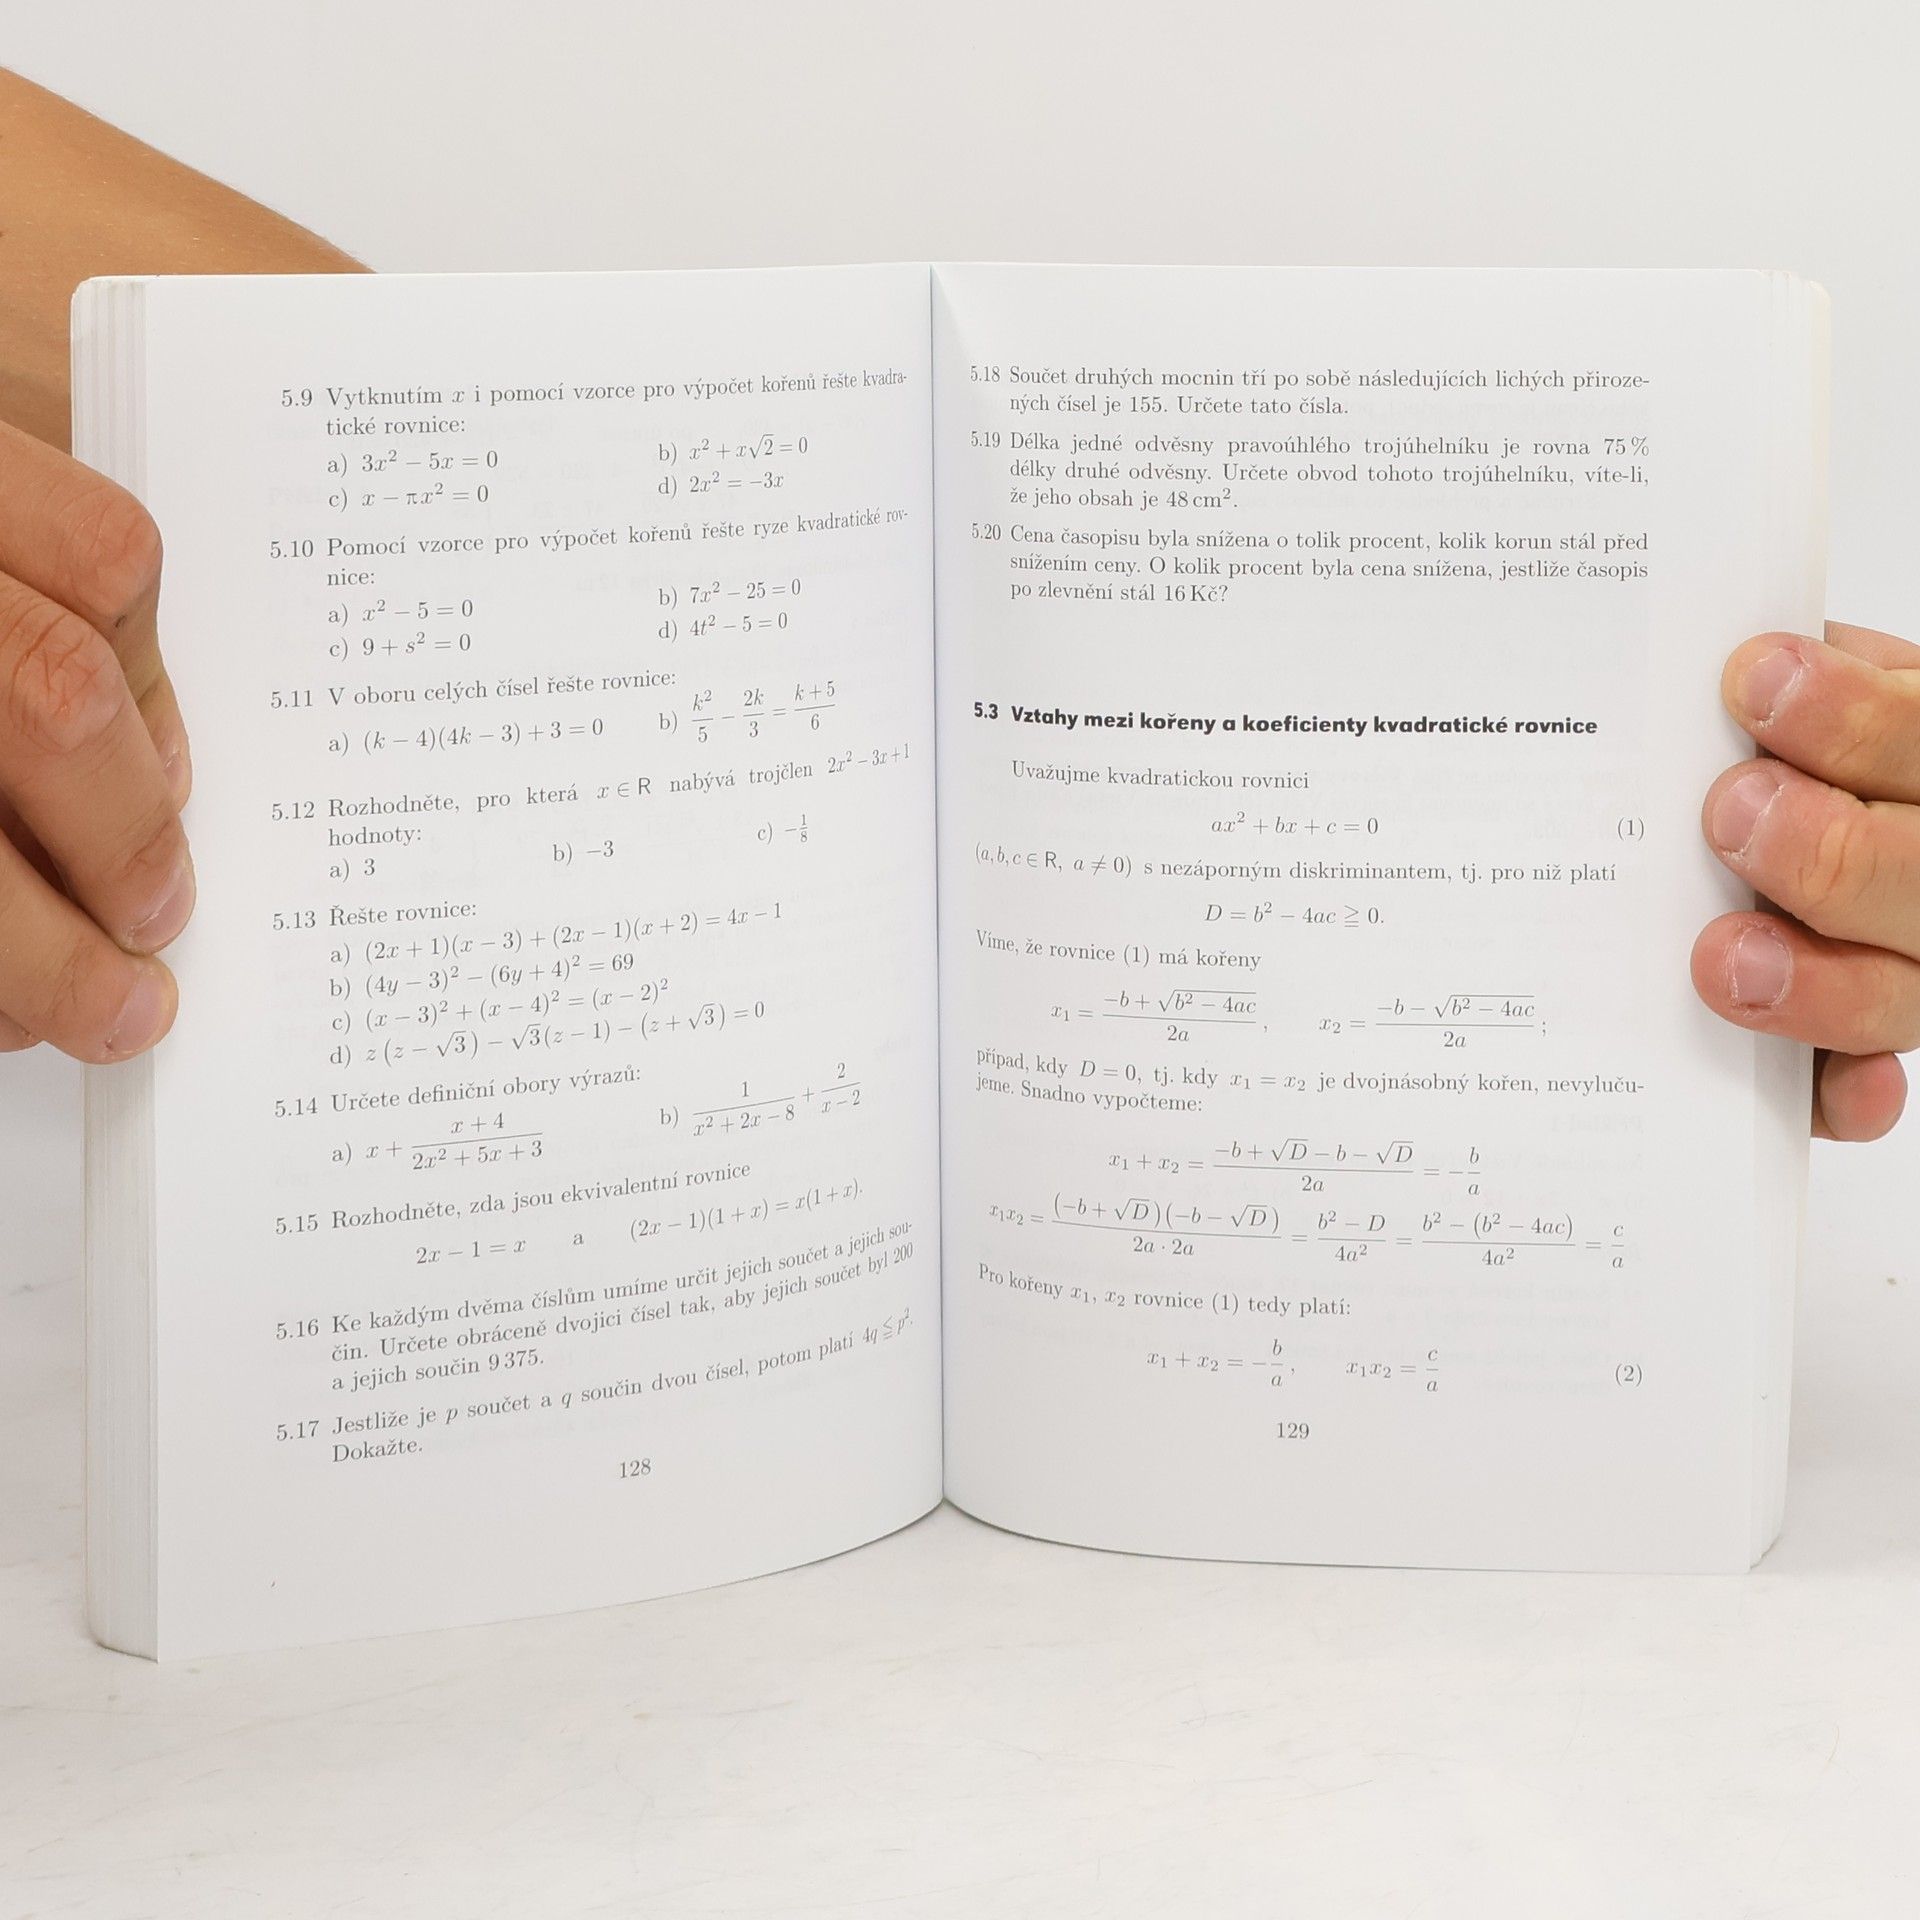 5.9 Vytknutím x i pomocí vzorce pro výpočet kořenů řešte kvadra-
tické rovnice:
a) 3x² − 5x = 0 b) x² + x√2 = 0
c) x − πx² = 0 d) 2x² = −3x
5.10 Pomocí vzorce pro výpočet kořenů řešte ryze kvadratické rov-
nice:
a) x² − 5 = 0 b) 7x² − 25 = 0
c) 9 + s² = 0 d) 4t² − 5 = 0
5.11 V oboru celých čísel řešte rovnice:
a) (k − 4)(4k − 3) + 3 = 0 b) k²/5 − 2k/3 = (k + 5)/6
5.12 Rozhodněte, pro která x ∈ R nabývá trojčlen 2x² − 3x + 1
hodnoty:
a) 3 b) −3 c) −1/8
5.13 Řešte rovnice:
a) (2x + 1)(x − 3) + (2x − 1)(x + 2) = 4x − 1
b) (4y − 3)² − (6y + 4)² = 69
c) (x − 3)² + (x − 4)² = (x − 2)²
d) z(z − √3) − √3(z − 1) − (z + √3) = 0
5.14 Určete definiční obory výrazů:
a) x + (x + 4)/(2x² + 5x + 3) b) 1/(x² + 2x − 8) + 2/(x − 2)
5.15 Rozhodněte, zda jsou ekvivalentní rovnice
2x − 1 = x a (2x − 1)(1 + x) = x(1 + x).
5.16 Ke každým dvěma číslům umíme určit jejich součet a jejich sou-
čin. Určete obráceně dvojici čísel tak, aby jejich součet byl 200
a jejich součin 9 375.
5.17 Jestliže je p součet a q součin dvou čísel, potom platí 4q ≦ p².
Dokažte.
128
5.18 Součet druhých mocnin tří po sobě následujících lichých přiroze-
ných čísel je 155. Určete tato čísla.
5.19 Délka jedné odvěsny pravoúhlého trojúhelníku je rovna 75 %
délky druhé odvěsny. Určete obvod tohoto trojúhelníku, víte-li,
že jeho obsah je 48 cm².
5.20 Cena časopisu byla snížena o tolik procent, kolik korun stál před
snížením ceny. O kolik procent byla cena snížena, jestliže časopis
po zlevnění stál 16 Kč?
5.3 Vztahy mezi kořeny a koeficienty kvadratické rovnice
Uvažujme kvadratickou rovnici
ax² + bx + c = 0 (1)
(a, b, c ∈ R, a ≠ 0) s nezáporným diskriminantem, tj. pro niž platí
D = b² − 4ac ≧ 0.
Víme, že rovnice (1) má kořeny
x₁ = (−b + √(b² − 4ac))/2a , x₂ = (−b − √(b² − 4ac))/2a ;
případ, kdy D = 0, tj. kdy x₁ = x₂ je dvojnásobný kořen, nevyluču-
jeme. Snadno vypočteme:
x₁ + x₂ = (−b + √D − b − √D)/2a = −b/a
x₁x₂ = (−b + √D)(−b − √D)/(2a · 2a) = (b² − D)/4a² = (b² − (b² − 4ac))/4a² = c/a
Pro kořeny x₁, x₂ rovnice (1) tedy platí:
x₁ + x₂ = −b/a , x₁x₂ = c/a (2)
129